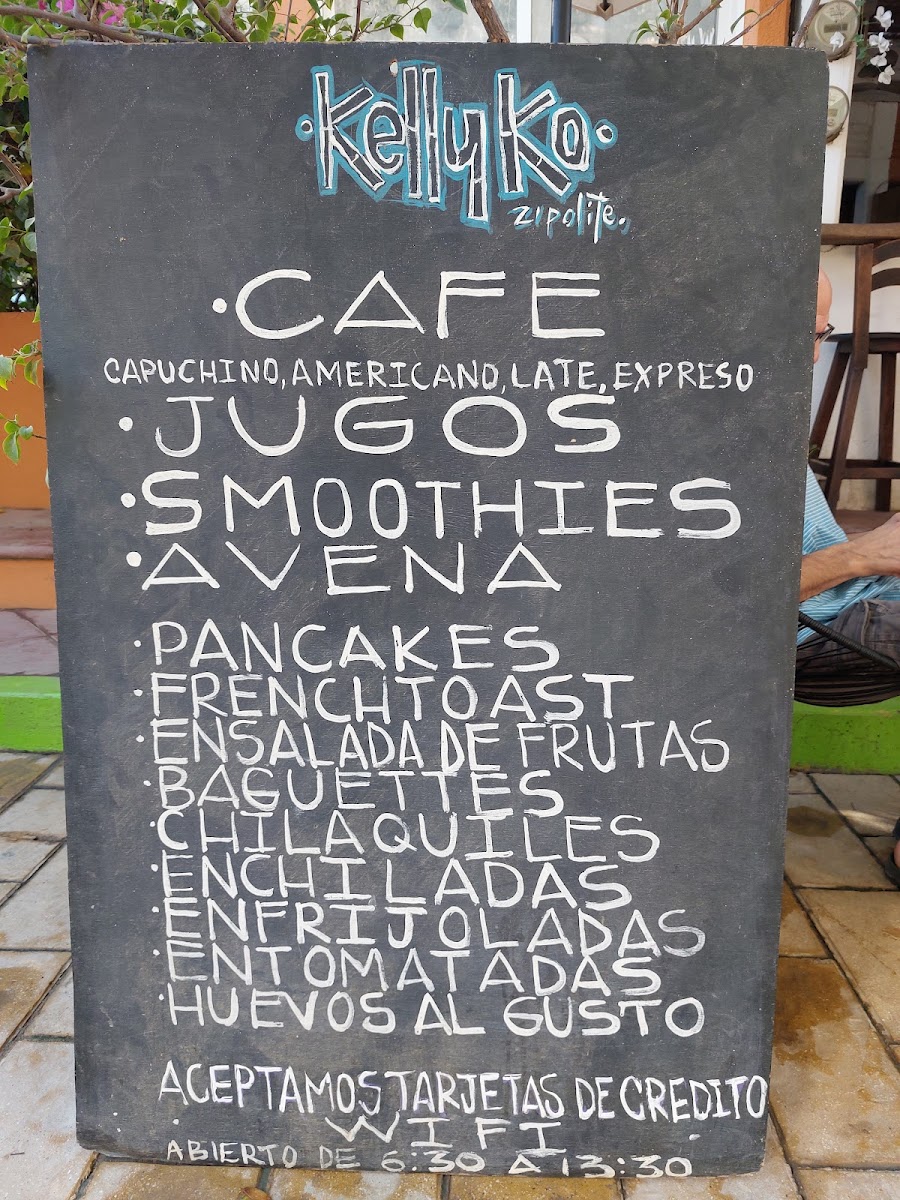 ·Kelly Ko·
Zipolite.
·CAFE
CAPUCHINO, AMERICANO, LATE, EXPRESO
·JUGOS
·SMOOTHIES
·AVENA
·PANCAKES
·FRENCHTOAST
·ENSALADA DE FRUTAS
·BAGUETTES
·CHILAQUILES
·ENCHILADAS
·ENFRIJOLADAS
·ENTOMATADAS
·HUEVOS AL GUSTO
ACEPTAMOS TARJETAS DE CREDITO
·WIFI·
ABIERTO DE 6:30 A 13:30